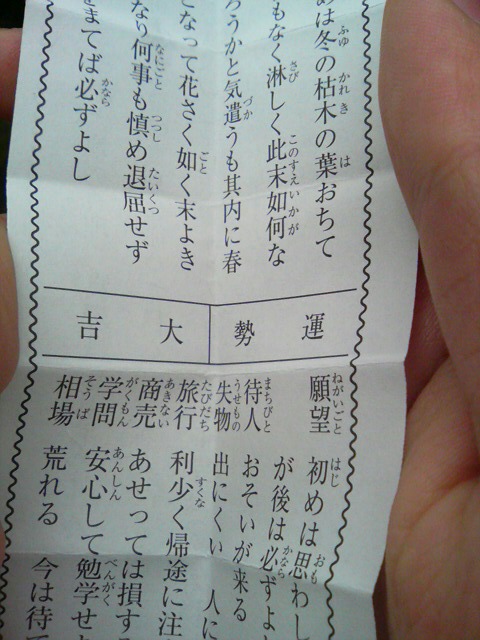 めは冬の枯木の葉おちて
もなく淋しく此末如何な
ろうかと気遣うも其内に春
となって花さく如く末よき
なり何事も慎め退屈せず
まてば必ずよし
運勢
大吉
願望 初めは思わし
が後は必ずよ
待人 おそいが来る
失物 出にくい 人に
旅行 利少く帰途に注
商売 あせっては損する
学問 安心して勉学せ
相場 荒れる 今は待て